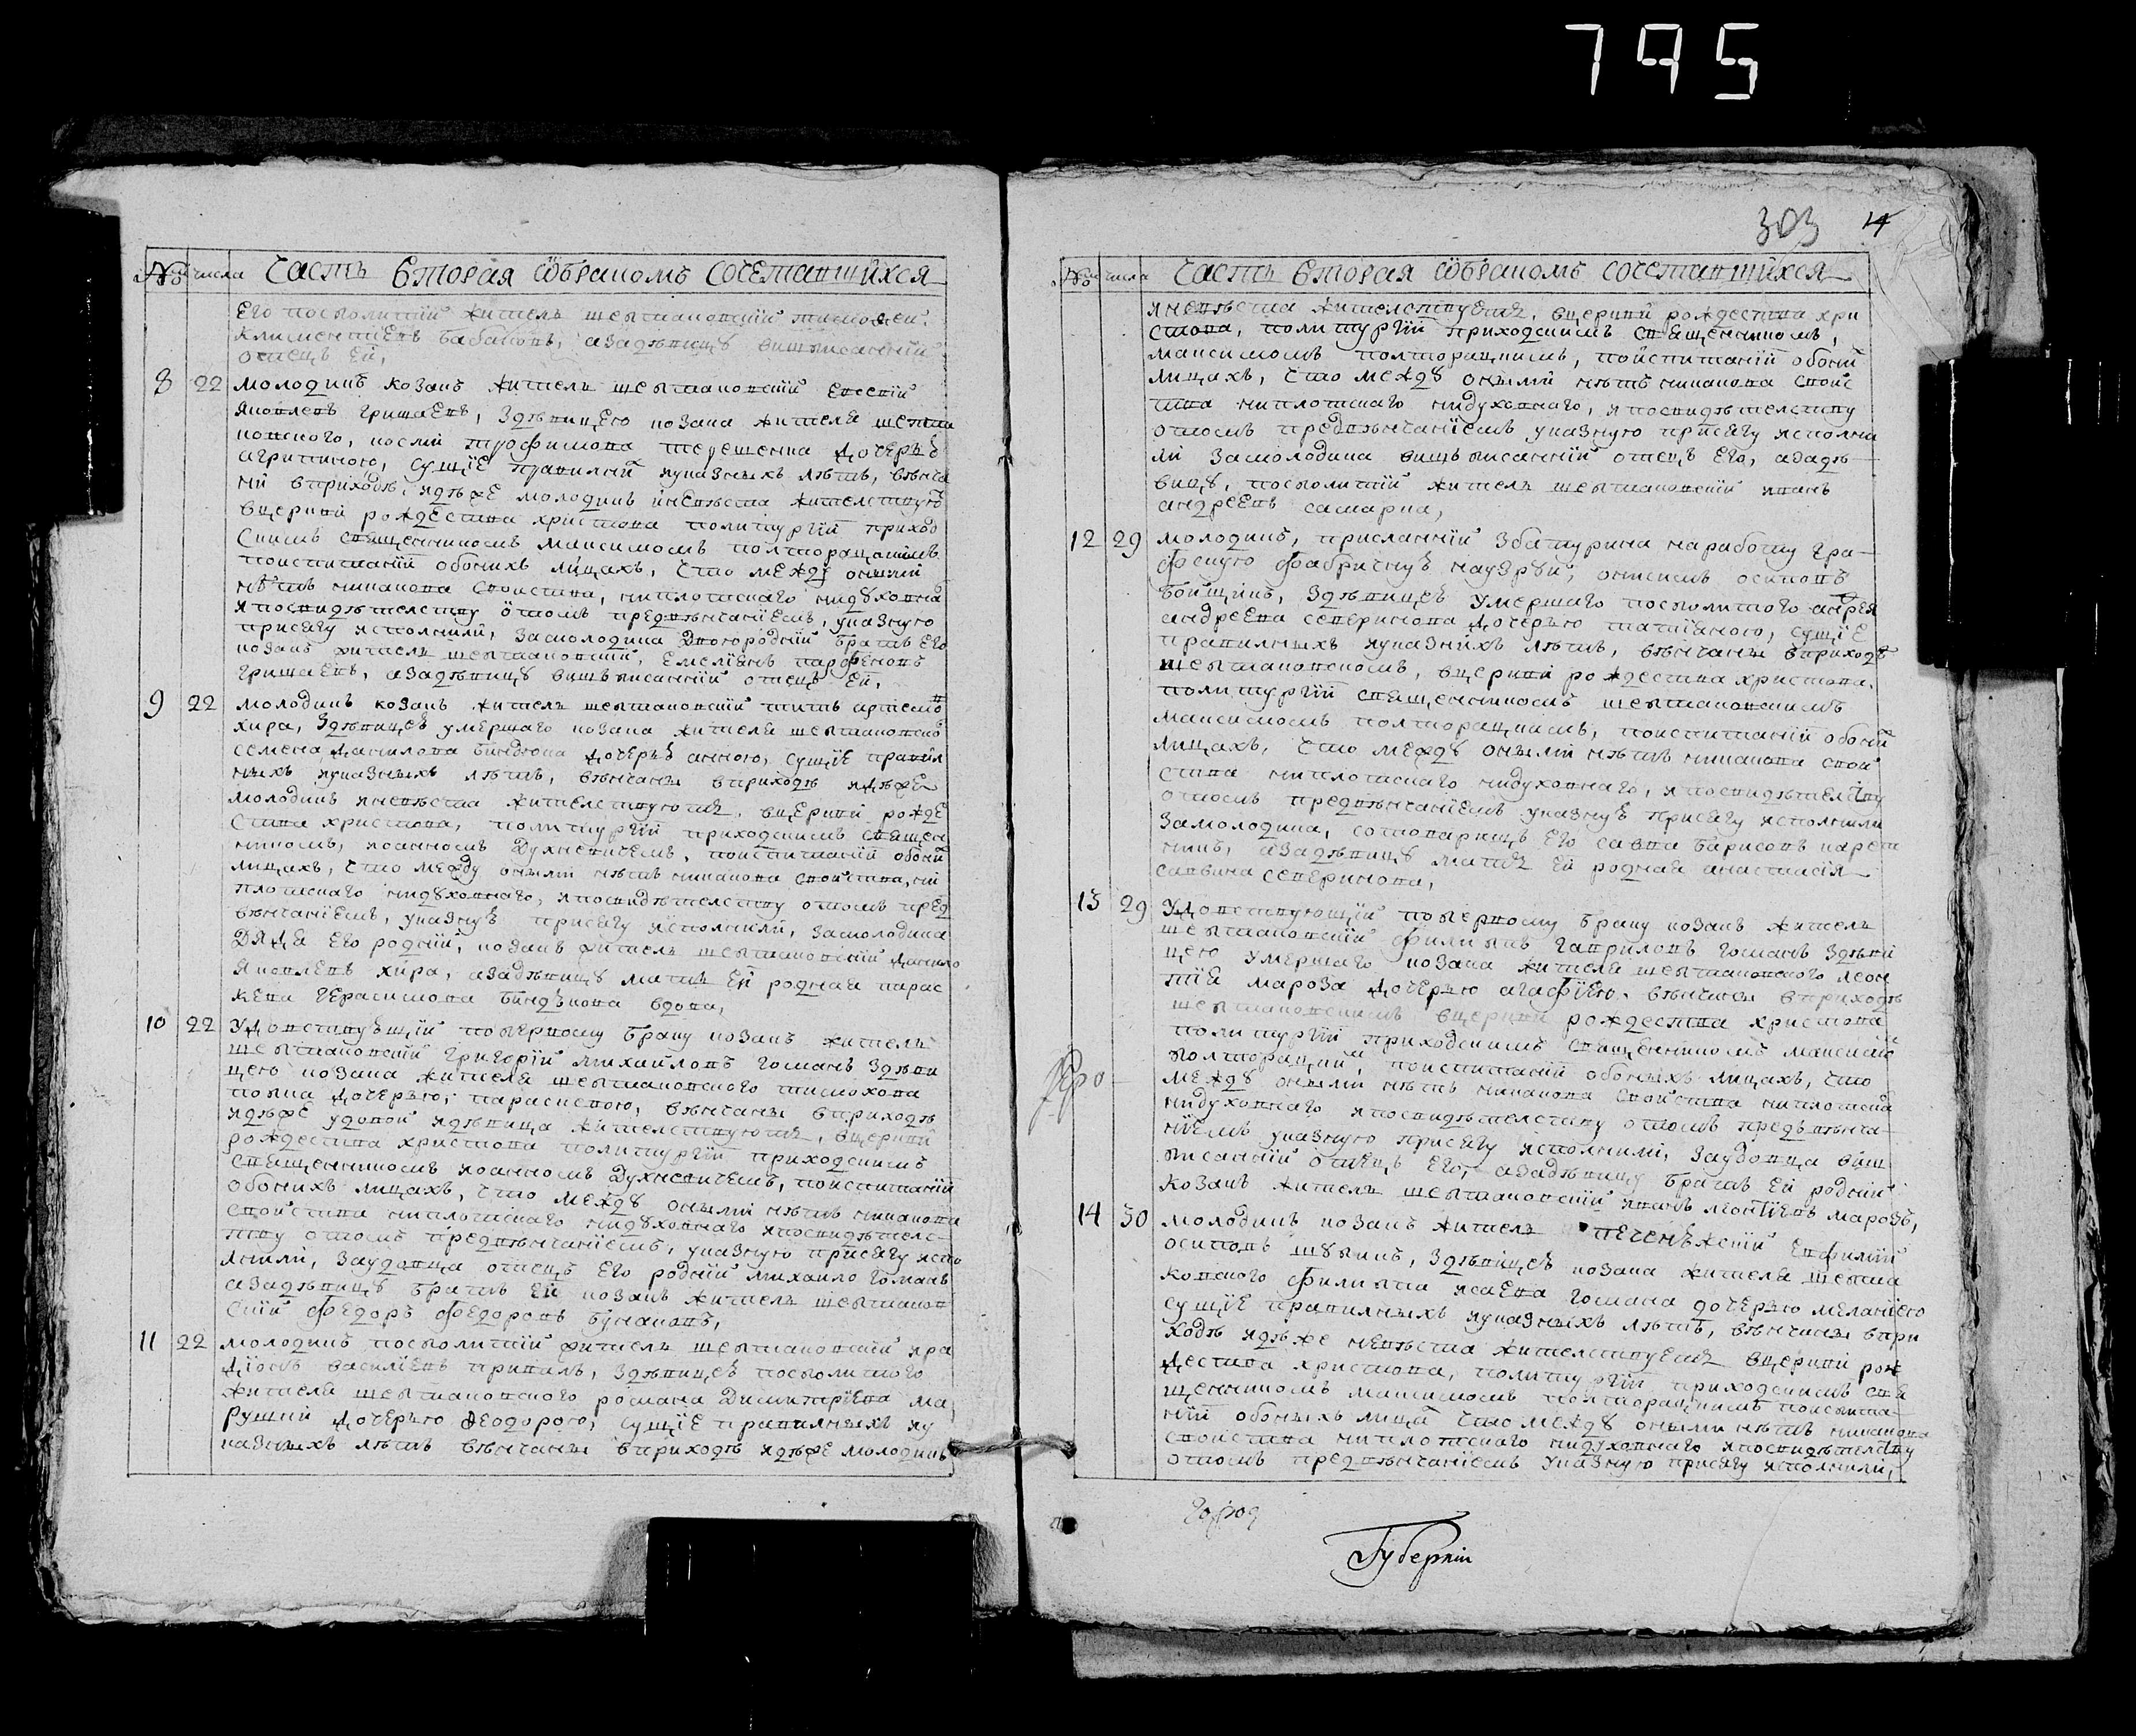 795
303 14
№ числа Часть вторая ѡбракомъ сочетавшихся
его посполитій житель шептаковскій тимофей
климентіевъ бабаковъ, азадѣвицу вишписанній
отецъ ей,
8 22 молодикъ козакъ житель шептаковскій евсевій
яковлевъ гришаевъ, здѣвицею козака жителя шепта
ковского, космы трофимова терещенка дочеръю
агрипиною, сущіе правилнихъ иуказныхъ лѣтъ, вѣнча
ни вприходѣ, идѣже молодикъ иневѣста жителствую
вцеркви рождества христова политургіи приход
скимъ священникомъ максимомъ полторацкимъ
поиспитаніи обоихъ лицахъ, что между оними
нѣтъ никакова своиства, ниплотскаго нидуховна
ипосвидѣтелству отомъ предвѣнчаніемъ, указную
присягу исполнили, замолодика двоюродній братъ его
козакъ житель шептаковскій, емеліянъ парфеновъ
гришаевъ, азадѣвицу вишписанній отецъ ей,
9 22 молодикъ козакъ житель шептаковскій титъ артемовъ
хира, здѣвицею умершаго козака жителя шептаковско
семена данилова биндюка дочерью анною, сущіе правил
ныхъ иуказныхъ лѣтъ, вѣнчаны вприходѣ идѣже
молодикъ иневѣста жителствуютъ, вцеркви рожде
ства христова, политургіи приходскимъ священ
никомъ, иоанномъ духневичемъ, поиспитаніи обоих
лицахъ, что между оними нѣтъ никакова своиства, ни
плотскаго нидуховнаго, ипосвидѣтелству отомъ пред
вѣнчаніемъ, указную присягу исполнили, замолодика
дядя его родній, козакъ житель шептаковскій данило
яковлевъ хира, азадѣвицу мать ей родная парас
кева герасимова биндюкова вдова,
10 22 удовствующій поперному браку козакъ житель
шептаковскій григорій михайловъ гоманъ здѣви
цею козака жителя шептаковского тимохова
дочерью, параскевою, вѣнчаны вприходѣ
идѣже удовой идѣвица жителствуютъ, вцеркви
рождества христова политургіи приходскимъ
священникомъ иоанномъ духневичемъ, поиспитаніи
обоихъ лицахъ, что между оними нѣтъ никакова
своиства ниплотскаго нидуховнаго ипосвидѣтелс
тву отомъ предвѣнчаніемъ, указную присягу испо
лнили, заудовца отецъ его родній михаило гоманъ
азадѣвицу братъ ей козакъ житель шептаков
скій федоръ федоровъ
11 22 молодикъ посполитій житель шептаковскій ира
діонъ василіевъ здѣвицею посполитого
жителя шептаковского романа димитріева ма
рущки дочерью феодорою, сущіе правилныхъ иу
казныхъ лѣтъ вѣнчаны вприходѣ идѣже молодикъ
№ числа Часть вторая ѡбракомъ сочетавшихся
иневѣста жителствуетъ, вцеркви рождества хри
стова, политургіи приходскимъ священникомъ,
максимомъ полторацкимъ, поиспитаніи обоих
лицахъ, что между оними нѣтъ никакова своис
тва ниплотскаго нидуховнаго, ипосвидѣтелству
отомъ предвѣнчаніемъ указную присягу исполни
ли замолодика вишписанній отецъ его, азадѣ
вицу, посполитій житель шептаковскій иванъ
андреевъ самарка,
12 29 молодикъ, присланній збатурина наработу гра
фскую фабричну осиповъ
здѣвицею умершаго посполитого андрея
андреева северинова дочерью татіаною, сущіе
правилныхъ иуказнихъ лѣтъ, вѣнчаны вприходѣ
шептаковскомъ, вцеркви рождества христова
политургіи священникомъ шептаковскимъ
максимомъ полторацкимъ, поиспитаніи обоих
лицахъ, что между оними нѣтъ никакова свои
ства ниплотскаго нидуховнаго, ипосвидѣтелству
отомъ предвѣнчаніемъ указную присягу исполнили
замолодика, сотоварищъ его савва барисовъ
азадѣвицу мать ей родная анастасія
саввина северинова,
13 29 удовствующій поперному браку козакъ житель
шептаковскій филиппъ гавриловъ гоманъ здѣви
цею умершаго козака жителя шептаковского леон
тія мароза дочерью агафіею, вѣнчаны вприходѣ
шептаковскомъ вцеркви рождества христова
политургіи приходскимъ священникомъ максимо
полторацкий, поиспитаніи обоихъ лицахъ, что
между оними нѣтъ никакова своиства ниплотска
нидуховнаго ипосвидѣтелству отомъ предъвѣнча
ніемъ указную присягу исполнили, заудовца виш
писанній отецъ его, азадѣвицу братъ ей родній
козакъ житель шептаковскій иванъ леонтіевъ марозъ,
14 30 молодикъ козакъ житель печенѣжскій евфимій
осиповъ здѣвицею козака жителя шепта
ковского филиппа исаева гомана дочерью меланіею
сущіе правилныхъ иуказныхъ лѣтъ, вѣнчаны впри
ходѣ идѣже невѣста жителствуетъ вцеркви рож
дества христова, политургіи приходскимъ свя
щенникомъ максимомъ полторацкимъ поиспита
ніи обоихъ лицахъ что между оними нѣтъ никакова
своиства ниплотскаго нидуховнаго ипосвидѣтелству
отомъ предвѣнчаніемъ указную присягу исполнили,
Губерніи